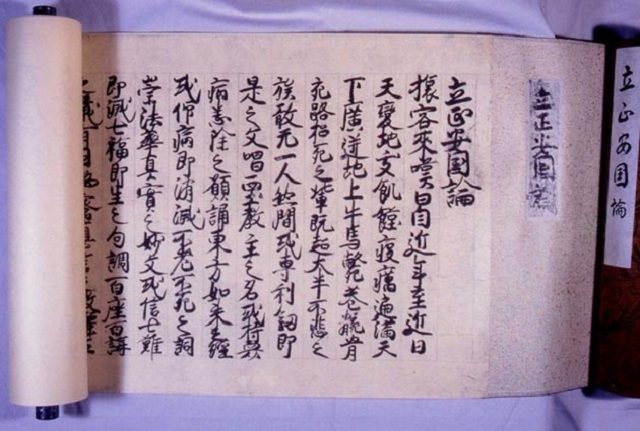 立正安国論
立正安国論
立正安国論
旅客來嘆曰自近年至近日
天變地夭飢饉疫癘遍滿天
下廣迸地上牛馬斃巷骸骨
充路招死之輩既超太半不悲之
族敢无一人然間或専利釼即
是之文唱西土教主之名或持衆
病悉除之願誦東方如来之經
或仰病即消滅不老不死之詞
崇法華真實之妙文或信七難
即滅七福即生之句調百座百講
之儀有因秘密真言之教